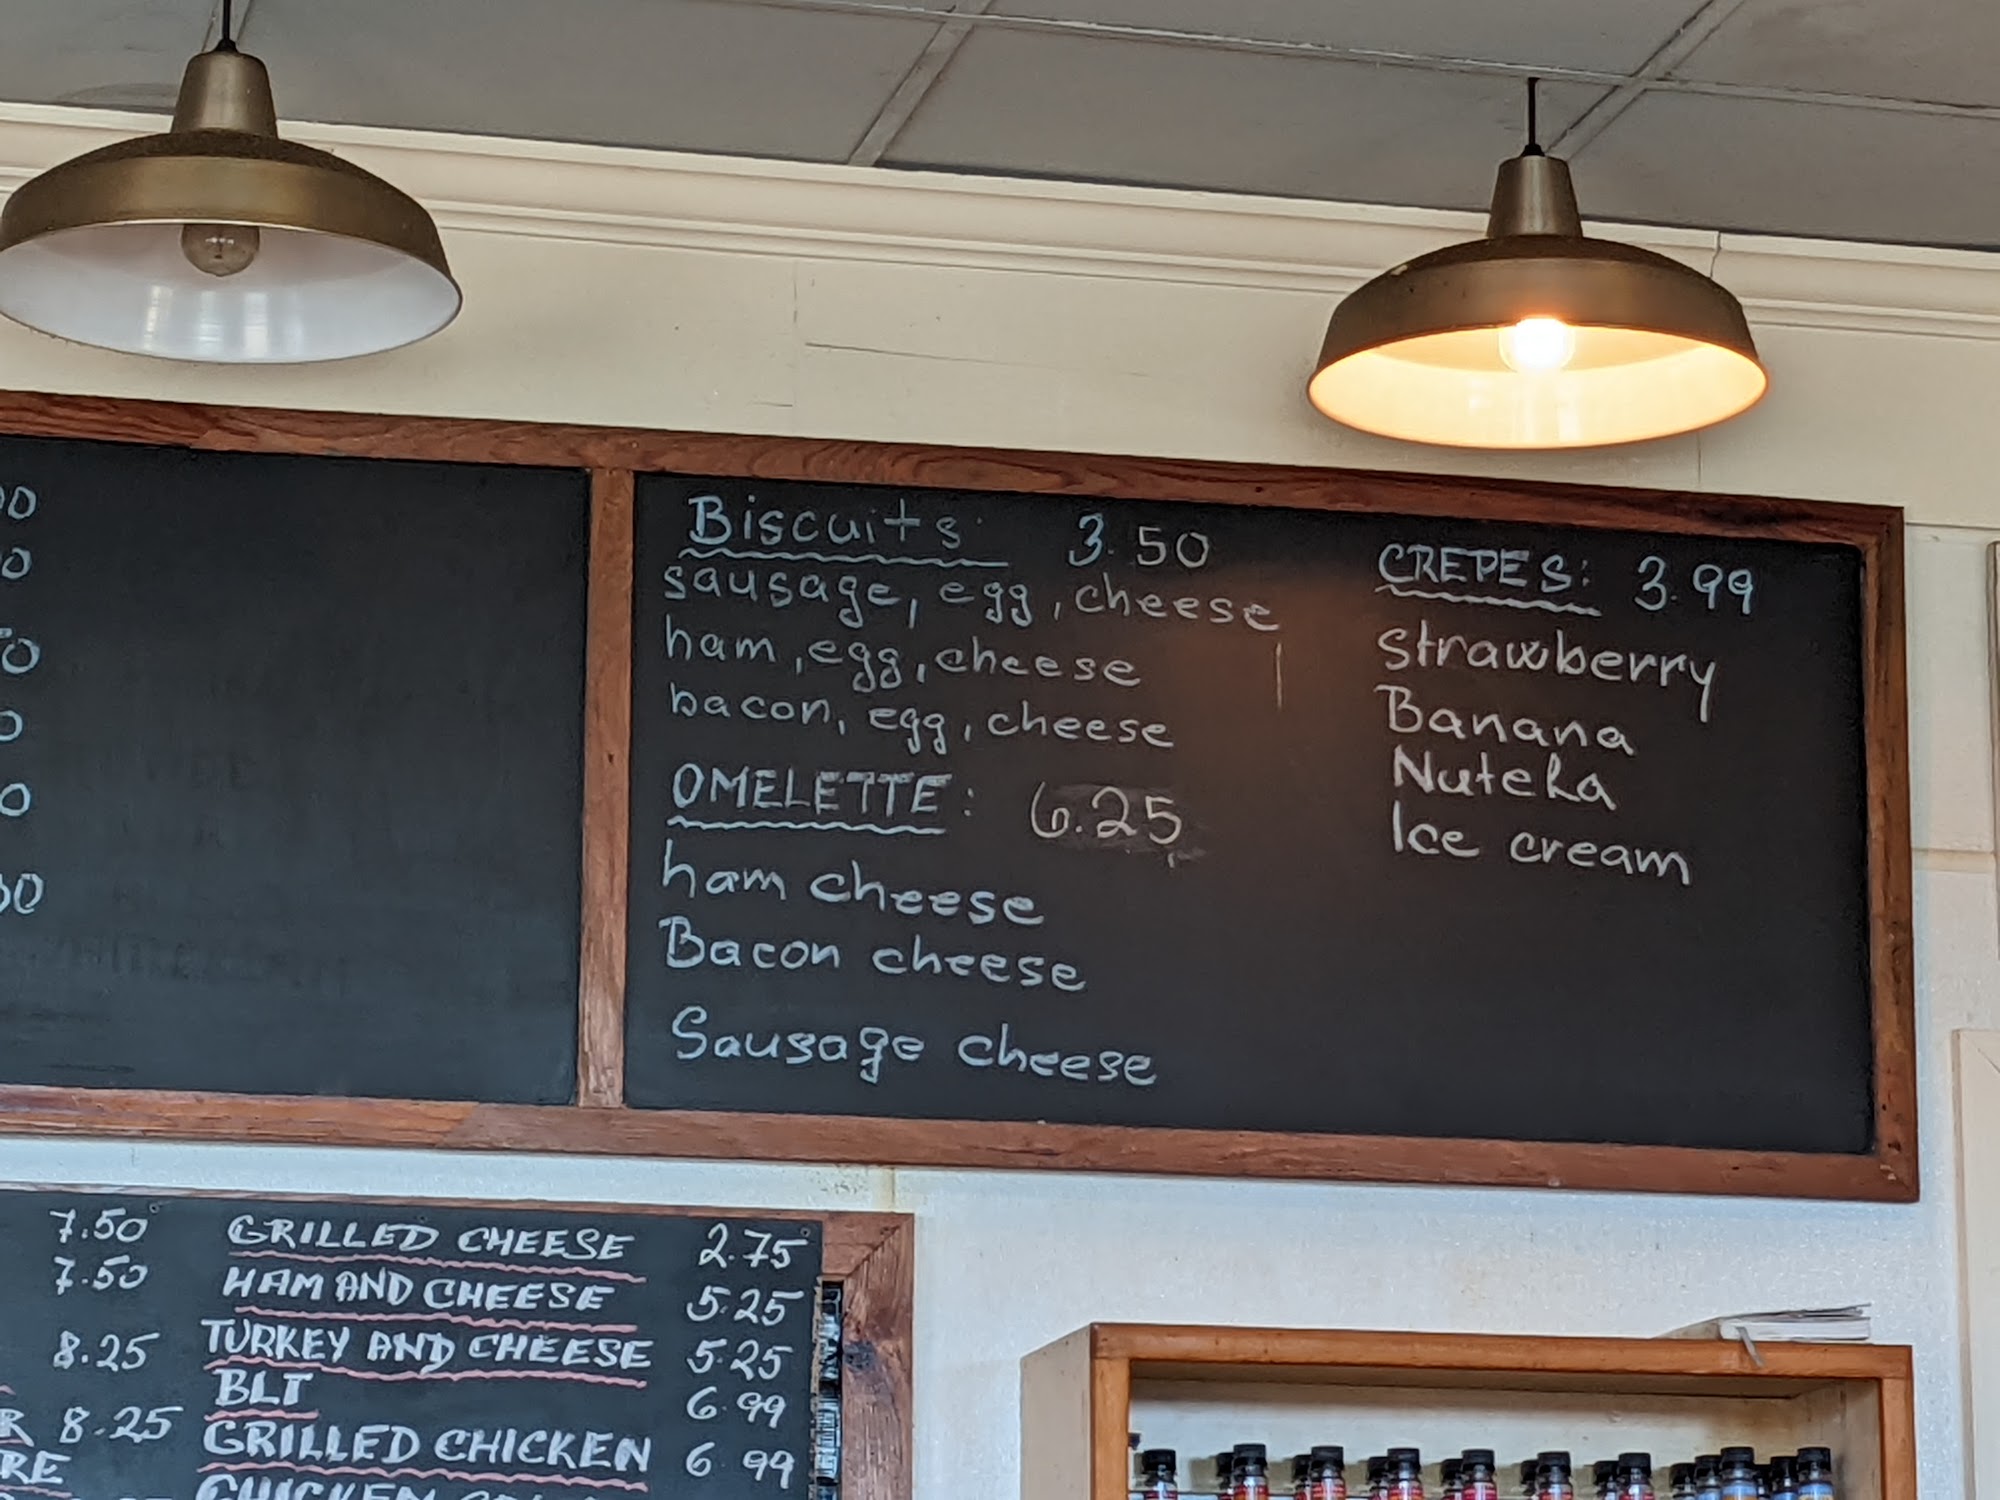 Biscuits 3.50
sausage, egg, cheese
ham, egg, cheese
bacon, egg, cheese
OMELETTE: 6.25
ham cheese
Bacon cheese
Sausage cheese
CREPES: 3.99
strawberry
Banana
Nutella
Ice cream
7.50
7.50
8.25
8.25
GRILLED CHEESE 2.75
HAM AND CHEESE 5.25
TURKEY AND CHEESE 5.25
BLT 6.99
GRILLED CHICKEN 6.99
CHICKEN